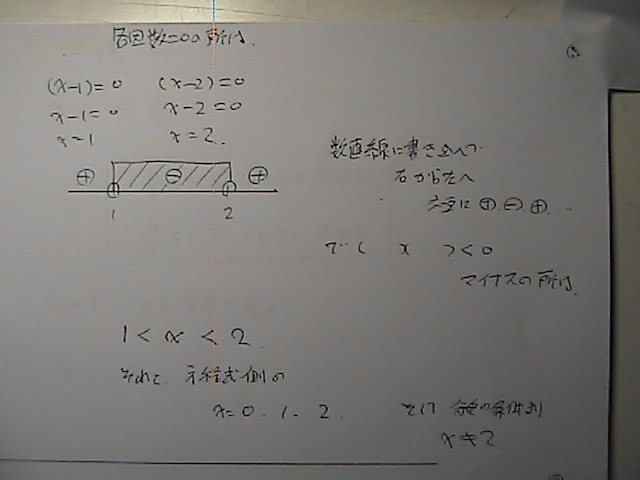 各因数=0の所は、
(x-1)=0  (x-2)=0
x-1=0  x-2=0
x=1  x=2.
⊕ ⊖ ⊕
1 2
数直線に書き込んで
右から左へ
交互に ⊕,⊖,⊕,...
で( x )<0
マイナスの所は、
1<x<2.
それと、方程式側の
x=0.1.2.
x≠2